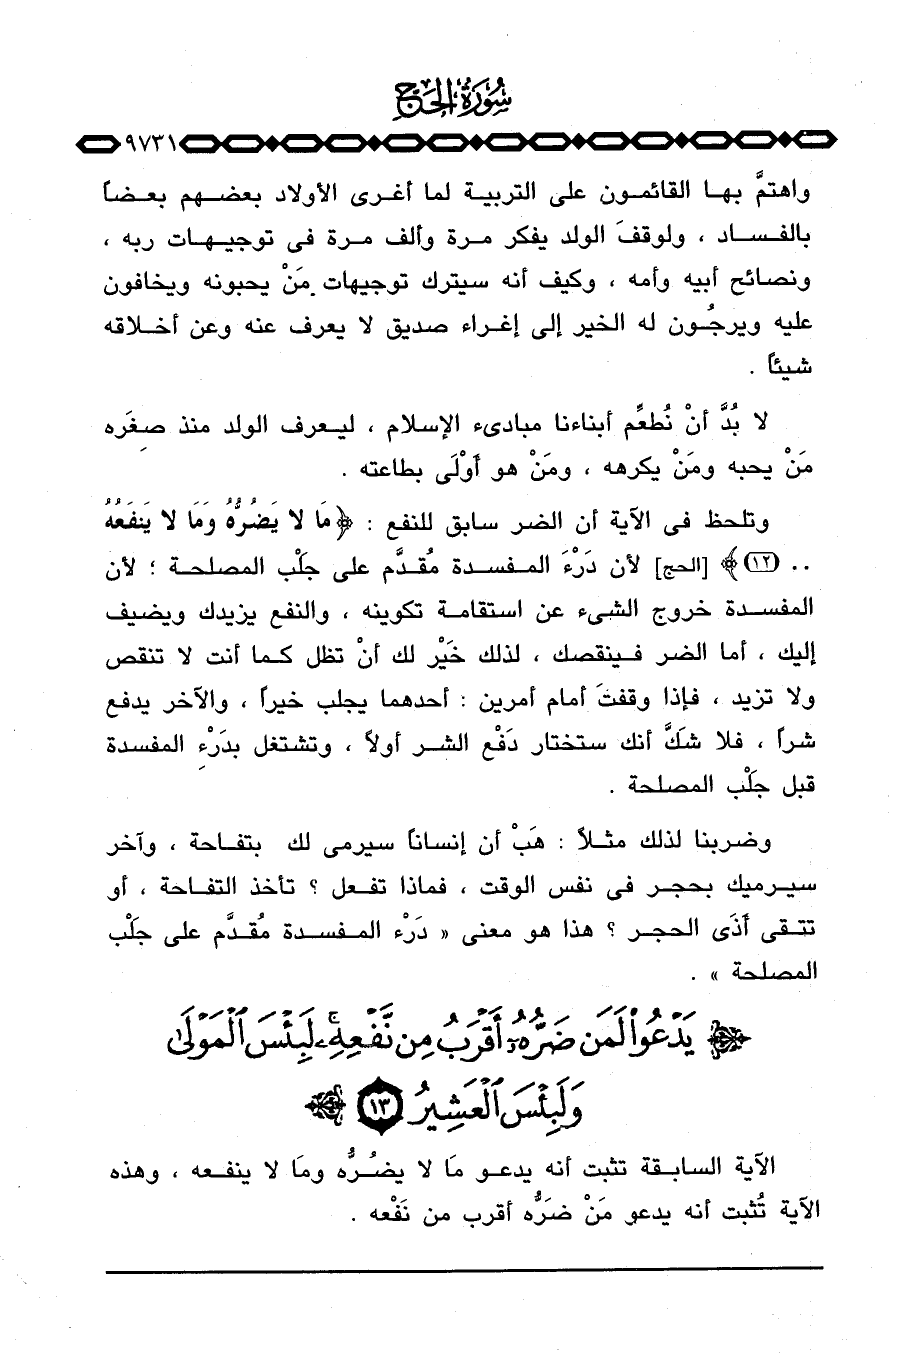 سُورَةُ الحَجّ
٩٧٣١
واهتمَّ بها القائمون على التربية لما أغرى الأولاد بعضهم بعضاً
بالفساد ، ولوقفَ الولد يفكر مرة وألف مرة فى توجيهات ربه ،
ونصائح أبيه وأمه ، وكيف أنه سيترك توجيهات مَنْ يحبونه ويخافون
عليه ويرجُون له الخير إلى إغراء صديق لا يعرف عنه وعن أخلاقه
شيئاً .
لا بُدَّ أنْ نُطعِّم أبناءنا مبادىء الإسلام ، ليعرف الولد منذ صغَره
مَنْ يحبه ومَنْ يكرهه ، ومَنْ هو أَوْلَى بطاعته .
وتلحظ فى الآية أن الضر سابق للنفع : ﴿ مَا لا يَضُرُّهُ وَمَا لا يَنفَعُهُ
.. (١٢)﴾ [الحج] لأن دَرْءَ المفسدة مُقدَّم على جَلْب المصلحة ؛ لأن
المفسدة خروج الشىء عن استقامة تكوينه ، والنفع يزيدك ويضيف
إليك ، أما الضر فينقصك ، لذلك خَيْر لك أنْ تظل كما أنت لا تنقص
ولا تزيد ، فإذا وقفتَ أمام أمرين : أحدهما يجلب خيراً ، والآخر يدفع
شراً ، فلا شكَّ أنك ستختار دَفْع الشر أولاً ، وتشتغل بدَرْء المفسدة
قبل جَلْب المصلحة .
وضربنا لذلك مثلاً : هَبْ أن إنساناً سيرمى لك بتفاحة ، وآخر
سيرميك بحجر فى نفس الوقت ، فماذا تفعل ؟ تأخذ التفاحة ، أو
تتقى أَذَى الحجر ؟ هذا هو معنى « دَرْء المفسدة مُقدَّم على جَلْب
المصلحة » .
﴿ يَدْعُواْ لَمَن ضَرُّهُۥٓ أَقْرَبُ مِن نَّفْعِهِۦۚ لَبِئْسَ ٱلْمَوْلَىٰ
وَلَبِئْسَ ٱلْعَشِيرُ ١٣ ﴾
الآية السابقة تثبت أنه يدعو مَا لا يضُرُّه ومَا لا ينفعه ، وهذه
الآية تُثبت أنه يدعو مَنْ ضَرُّه أقرب من نَفْعه .